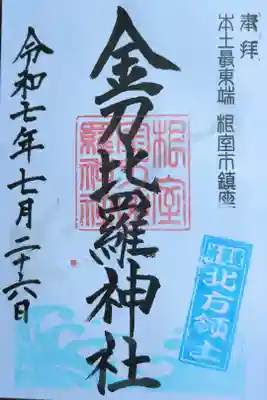 奉拝
本土最東端 根室市鎮座
金刀比羅神社
令和七年七月二十六日
北方領土